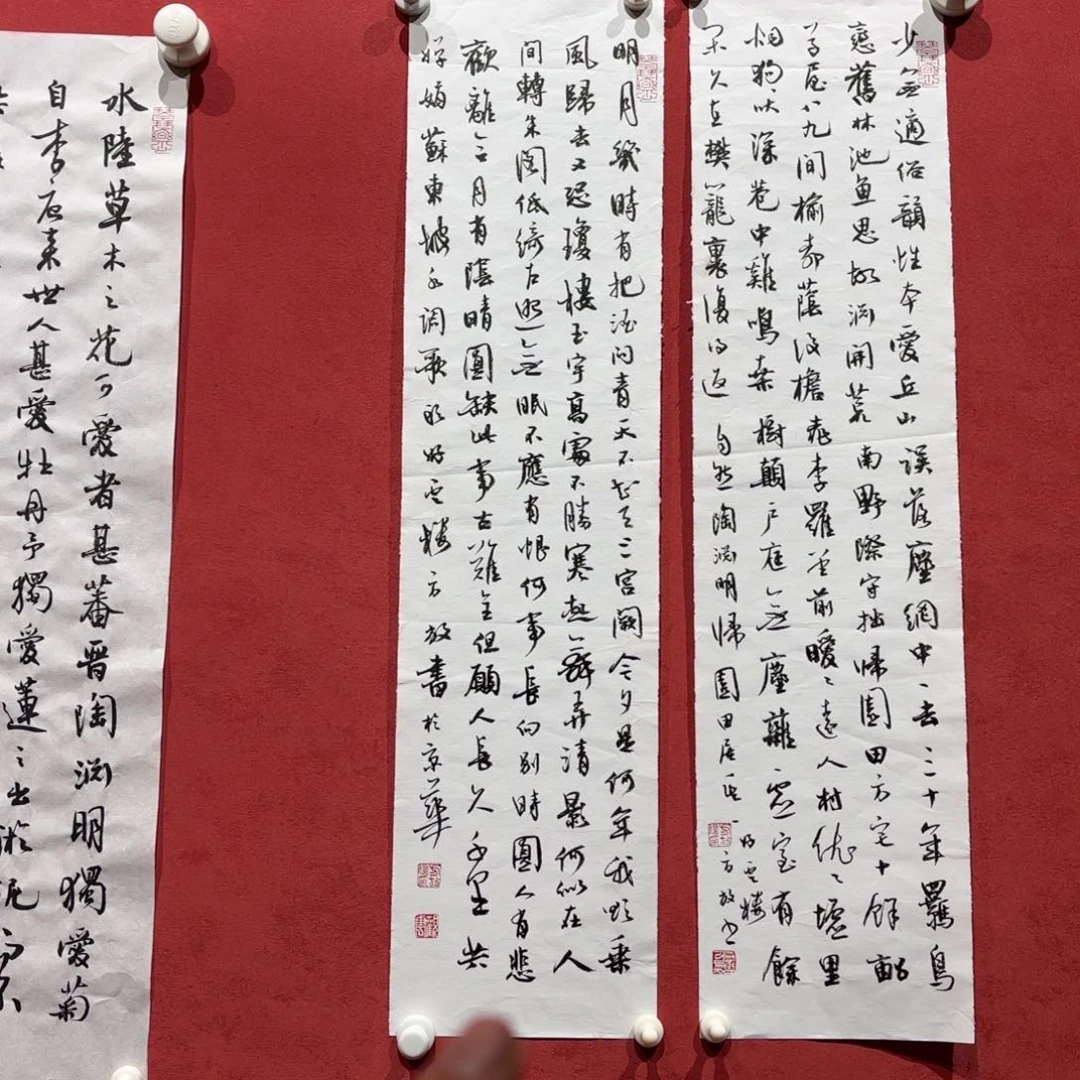 少無適俗韻性本愛丘山誤落塵網中一去三十年羈鳥
戀舊林池魚思故淵開荒南野際守拙歸園田方宅十餘畝
草屋八九間榆柳蔭後檐桃李羅堂前曖々遠人村依々墟里
烟狗吠深巷中雞鳴桑樹顛戶庭無塵雜虛室有餘
閑久在樊籠裏復得返自然陶淵明歸園田居其一
樓方放書
明月幾時有把酒問青天不知天上宮闕今夕是何年我欲乘
風歸去又恐瓊樓玉宇高處不勝寒起舞弄清影何似在人
間轉朱閣低綺戶照無眠不應有恨何事長向別時圓人有悲
歡離合月有陰晴圓缺此事古難全但願人長久千里共
嬋娟蘇東坡水調歌頭樓方放書於京華
水陸草木之花可愛者甚蕃晉陶淵明獨愛菊
自李唐來世人甚愛牡丹予獨愛蓮之出淤泥而不